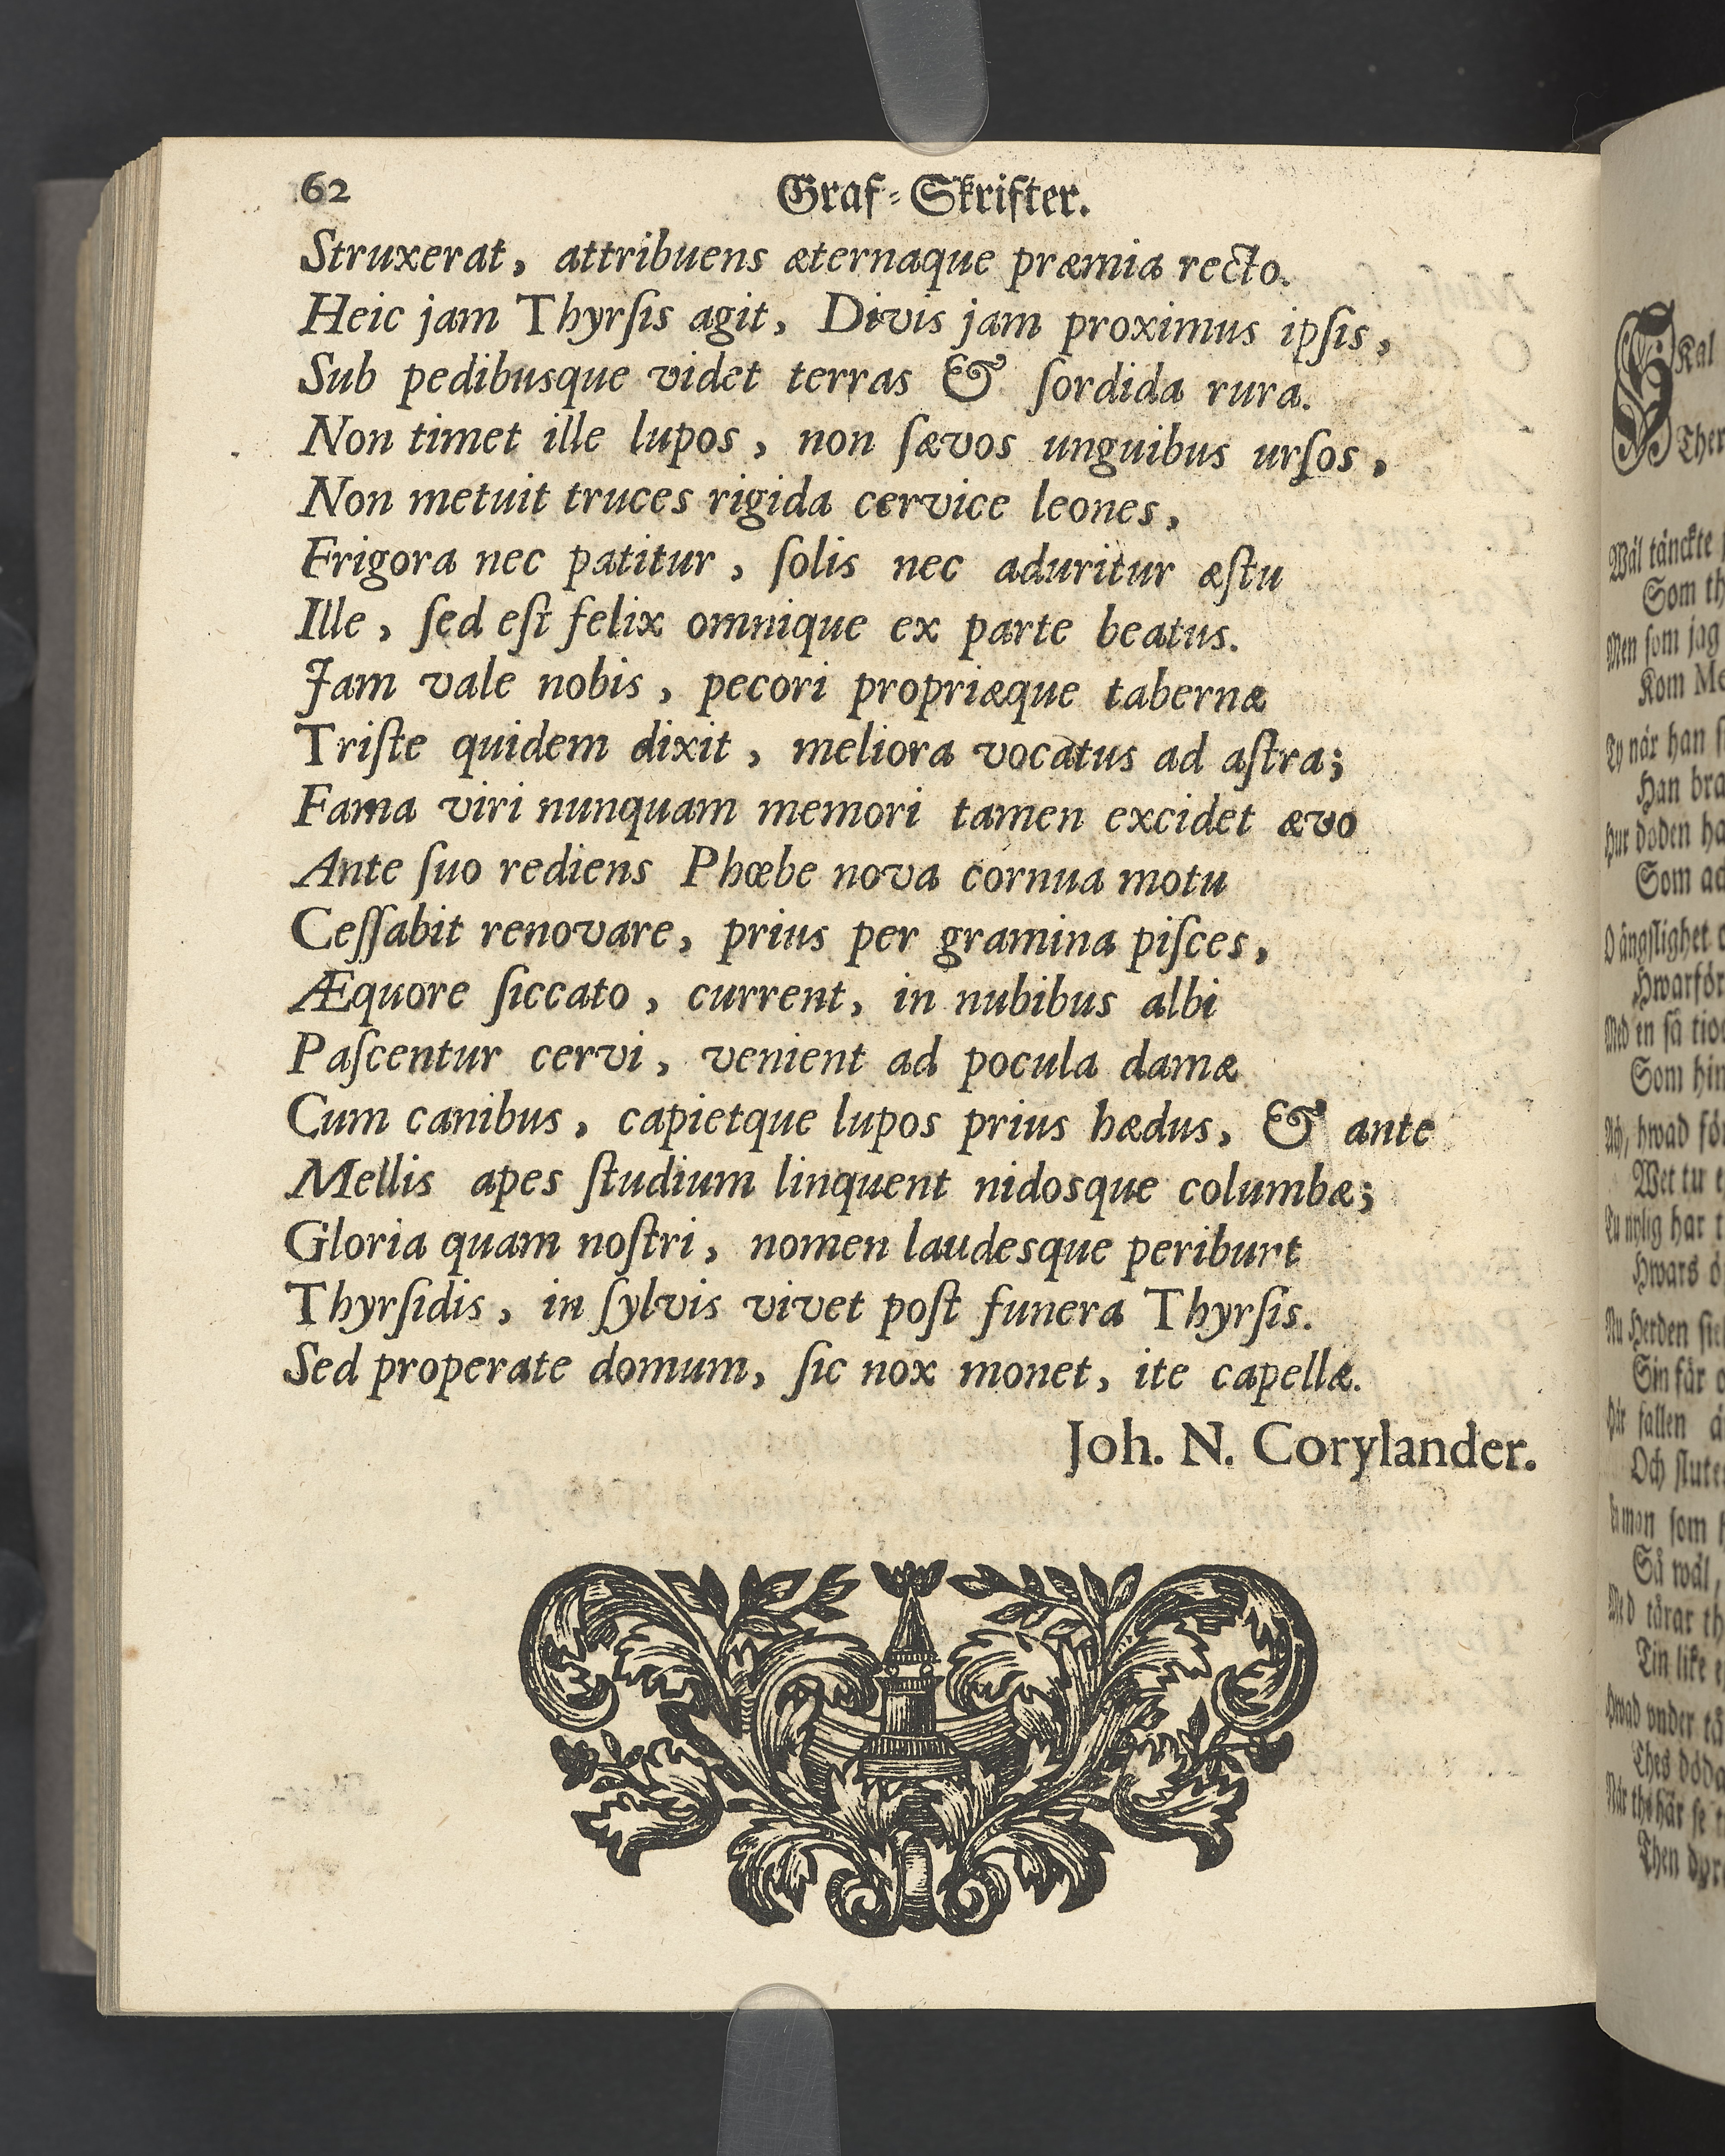 62
Graf-Skrifter.
Struxerat, attribuens æternaque præmia recto.
Heic jam Thyrſis agit, Divis jam proximus ipſis,
Sub pedibusque videt terras & ſordida rura.
Non timet ille lupos, non ſævos unguibus urſos,
Non metuit truces rigida cervice leones,
Frigora nec patitur, ſolis nec aduritur æſtu
Ille, ſed eſt felix omnique ex parte beatus.
Jam vale nobis, pecori propriæque tabernæ
Triſte quidem dixit, meliora vocatus ad aſtra;
Fama viri nunquam memori tamen excidet ævo
Ante ſuo rediens Phœbe nova cornua motu
Ceſſabit renovare, prius per gramina piſces,
Æquore ſiccato, current, in nubibus albi
Paſcentur cervi, venient ad pocula damæ
Cum canibus, capietque lupos prius hædus, & ante
Mellis apes ſtudium linquent nidosque columbæ;
Gloria quam noſtri, nomen laudesque periburt
Thyrſidis, in ſylvis vivet poſt funera Thyrſis.
Sed properate domum, ſic nox monet, ite capellæ.
Joh. N. Corylander.
SKal
Ther
Wäl tänckte
Som th
Men ſom jag
Kom Me
Ty når han
Han bra
Hur döden ha
Som
O ängſlighet
Hwarför
Med en ſå
Som hin
Ach, hwad för
Wet tu
Tu nylig har
Hwars
Nu Herden
Sin får
Här fallen
Och ſlute
ſom
Så wäl,
Med tårar th
Tin like
Hwad under
Thes döda
När the här ſe
Then dyr